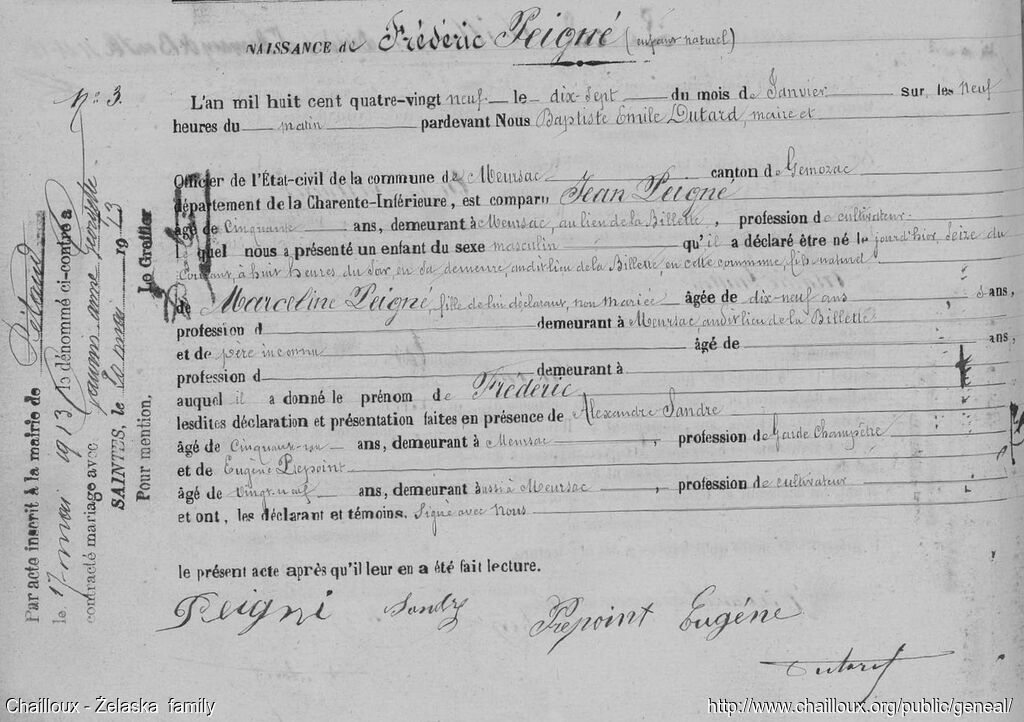 NAISSANCE de Frédéric Peigné (enfant naturel)
N° 3.
L'an mil huit cent quatre-vingt neuf le dix-sept du mois de Janvier sur les Neuf
heures du matin pardevant Nous Baptiste Emile Dutard, maire et
Officier de l'État-civil de la commune de Meursac canton de Gemozac
département de la Charente-Inférieure, est comparu Jean Peigné
âgé de Cinquante ans, demeurant à Meursac, au lieu de la Billette, profession de cultivateur
lequel nous a présenté un enfant du sexe masculin qu'il a déclaré être né le jourd'hier, Seize du
Courant, à huit heures du Soir, en sa demeure audit lieu de la Billette en cette commune, fils naturel
de Marceline Peigné, fille de lui déclarant, non Mariée âgée de dix-neuf ans ans,
profession d demeurant à Meursac audit lieu de la Billette
et de père inconnu âgé de ans,
profession d demeurant à
auquel il a donné le prénom de Frédéric
lesdites déclaration et présentation faites en présence de Alexandre Sandre
âgé de Cinquante-un ans, demeurant à Meursac, profession de Garde Champêtre
et de Eugène Prepoint
âgé de Vingt-neuf ans, demeurant aussi à Meursac, profession de cultivateur
et ont, les déclarant et témoins, Signé avec Nous
le présent acte après qu'il leur en a été fait lecture.
Peigné Sandre Prepoint Eugéne
Dutard
Par acte inscrit à la mairie de
le 17 mai 1913, le dénommé ci-contre a
contracté mariage avec
SAINTES, le 20 mai 1913
Pour mention,
Le Greffier
Chailloux - Żelaska family
http://www.chailloux.org/public/geneal/